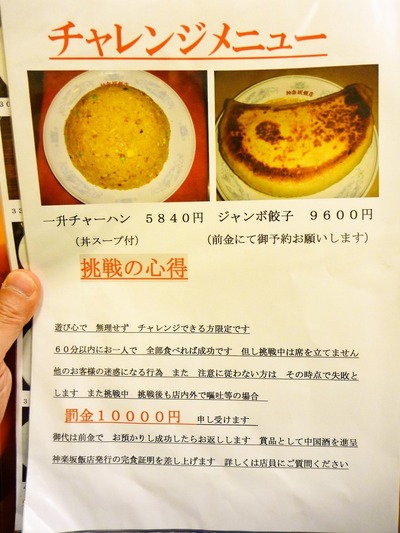 チャレンジメニュー
神楽坂飯店
一升チャーハン 5840円 ジャンボ餃子 9600円
(丼スープ付) (前金にて御予約お願いします)
挑戦の心得
遊び心で 無理せず チャレンジできる方限定です
60分以内にお一人で 全部食べれば成功です 但し挑戦中は席を立てません
他のお客様の迷惑になる行為 また 注意に従わない方は その時点で失敗と
します また挑戦中 挑戦後も店内外で嘔吐等の場合
罰金10000円 申し受けます
御代は前金で お預かりし成功したらお返しします 賞品として中国酒を進呈
神楽坂飯店発行の完食証明を差し上げます 詳しくは店員にご質問ください